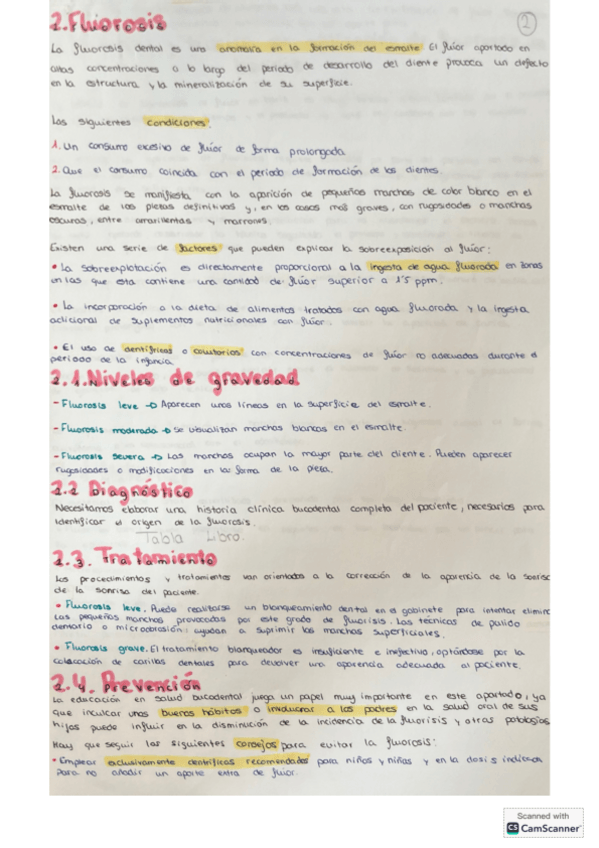 2. Fluorosis
2
La fluorosis dental es una anomalía en la formación del esmalte El flúor aportado en
altas concentraciones a lo largo del período de desarrollo del diente provoca un defecto
en la estructura y la mineralización de su superficie.
Las siguientes condiciones:
1. Un consumo excesivo de flúor de forma prolongada
2. Que el consumo coincida con el período de formación de los dientes.
La fluorosis se manifiesta con la aparición de pequeñas manchas de color blanco en el
esmalte de las piezas definitivas y, en los casos más graves, con rugosidades o manchas
oscuras, entre amarillentas y marrones.
Existen una serie de factores que pueden explicar la sobreexposición al flúor:
• La sobreexplotación es directamente proporcional a la ingesta de agua fluorada en zonas
en las que esta contiene una cantidad de flúor superior a 1'5 ppm.
• La incorporación a la dieta de alimentos tratados con agua fluorada y la ingesta
adicional de suplementos nutricionales con flúor.
• El uso de dentífricos o colutorios con concentraciones de flúor no adecuadas durante el
período de la infancia
2.1. Niveles de gravedad
- Fluorosis leve → Aparecen unas líneas en la superficie del esmalte.
- Fluorosis moderada → Se visualizan manchas blancas en el esmalte.
- Fluorosis severa → Las manchas ocupan la mayor parte del diente. Pueden aparecer
rugosidades o modificaciones en la forma de la pieza.
2.2 Diagnóstico
Necesitamos elaborar una historia clínica bucodental completa del paciente, necesarios para
identificar el origen de la fluorosis.
Tabla Libro.
2.3. Tratamiento
Los procedimientos y tratamientos van orientados a la corrección de la apariencia de la sonrisa
de la sonrisa del paciente.
• Fluorosis leve. Puede realizarse un blanqueamiento dental en el gabinete para intentar elimina
las pequeñas manchas provocadas por este grado de fluorisis. Las técnicas de pulido
demadio o microabrasión ayudan a suprimir las manchas superficiales.
• Fluorosis grave. El tratamiento blanqueador es insuficiente e inefectivo, optándose por la
colocación de carillas dentales para devolver una apariencia adecuada al paciente.
2.4. Prevención
La educación en salud bucodental juega un papel muy importante en este apartado, ya
que inculcar unos buenos hábitos o involucrar a los padres en la salud oral de sus
hijos puede influir en la disminución de la incidencia de la fluorisis y otras patologías
Hay que seguir los siguientes consejos para evitar la fluorosis:
• Emplear exclusivamente dentífricos recomendados para niños y niñas y en la dosis indicada
para no añadir un aporte extra de flúor.
Scanned with
CS CamScanner